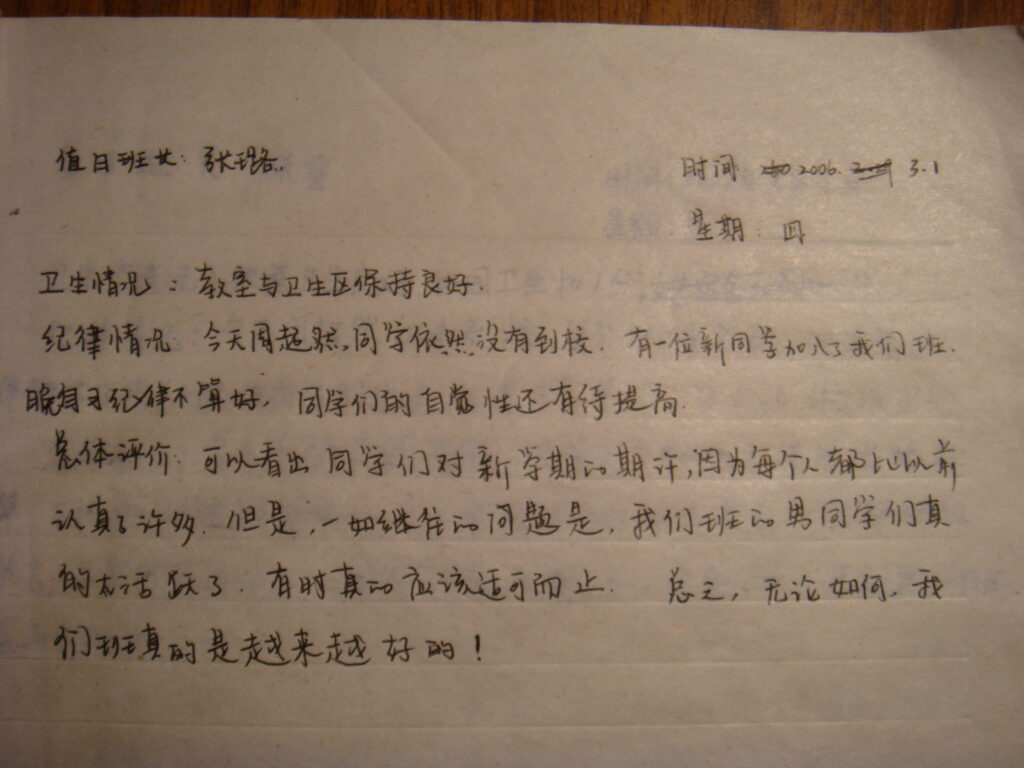 值日班长: 张璐.
时间 2006. 3.1
星期: 四
卫生情况: 教室与卫生区保持良好.
纪律情况: 今天周超然同学依然没有到校. 有一位新同学加入了我们班.
晚自习纪律不算好, 同学们的自觉性还有待提高.
总体评价: 可以看出同学们对新学期的期许,因为每个人都比以前
认真了许多. 但是, 一如继往的问题是, 我们班的男同学们真
的太活跃了. 有时真的应该适可而止. 总之, 无论如何, 我
们班真的是越来越好的!